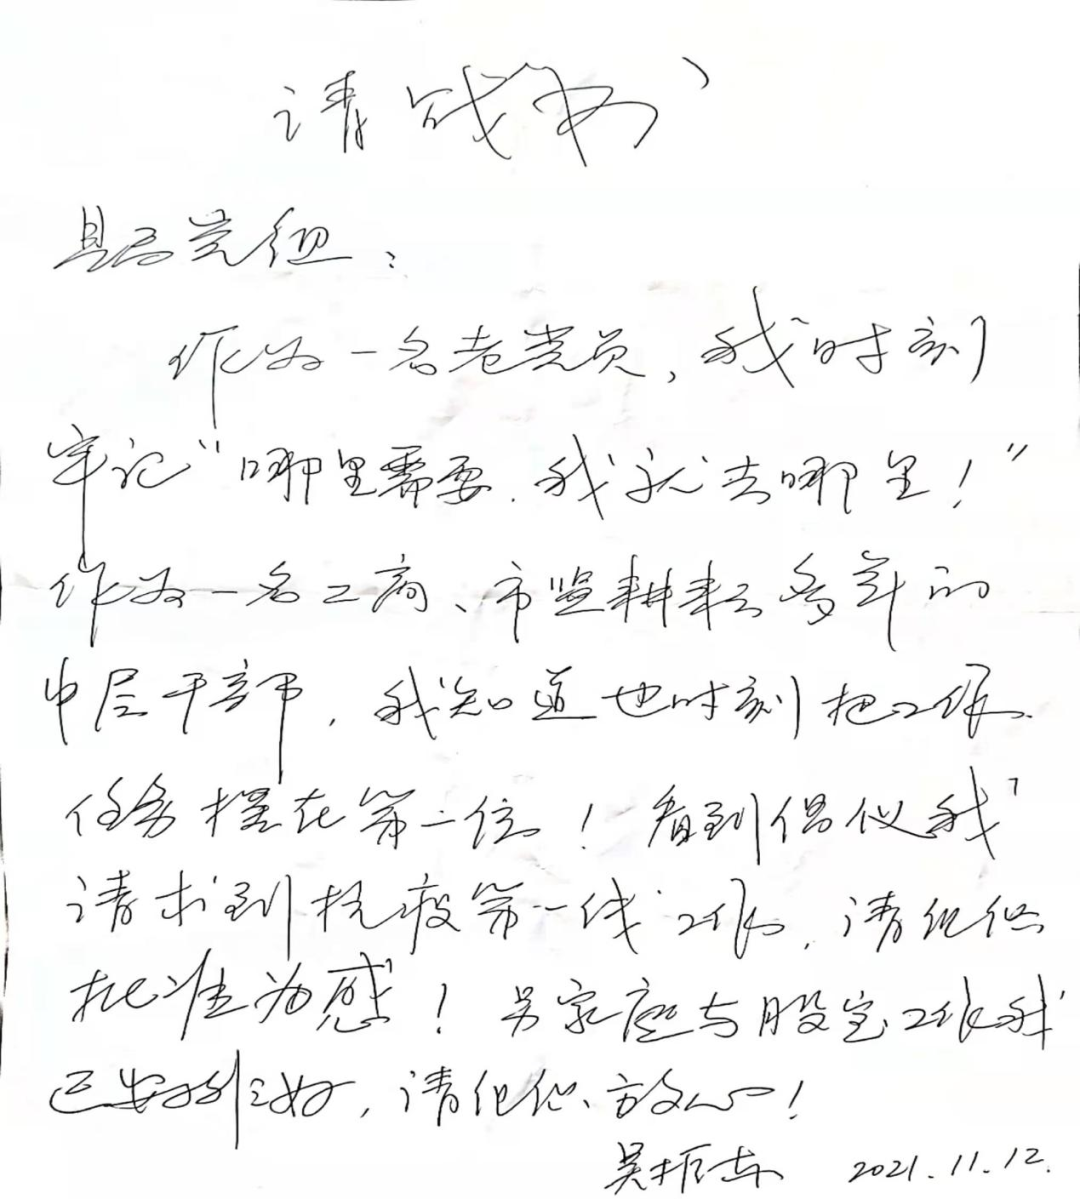 请战书
县局党组：
作为一名老党员，我时刻
牢记“哪里需要，我就去哪里！”
作为一名工商、市监耕耘多年的
中层干部，我知道也时刻把工作
任务摆在第一位！看到倡仪我
请求到抗疫第一线工作，请组织
批准为感！另家庭与股室工作我
已安排好，请组织放心！
吴振东 2021.11.12.